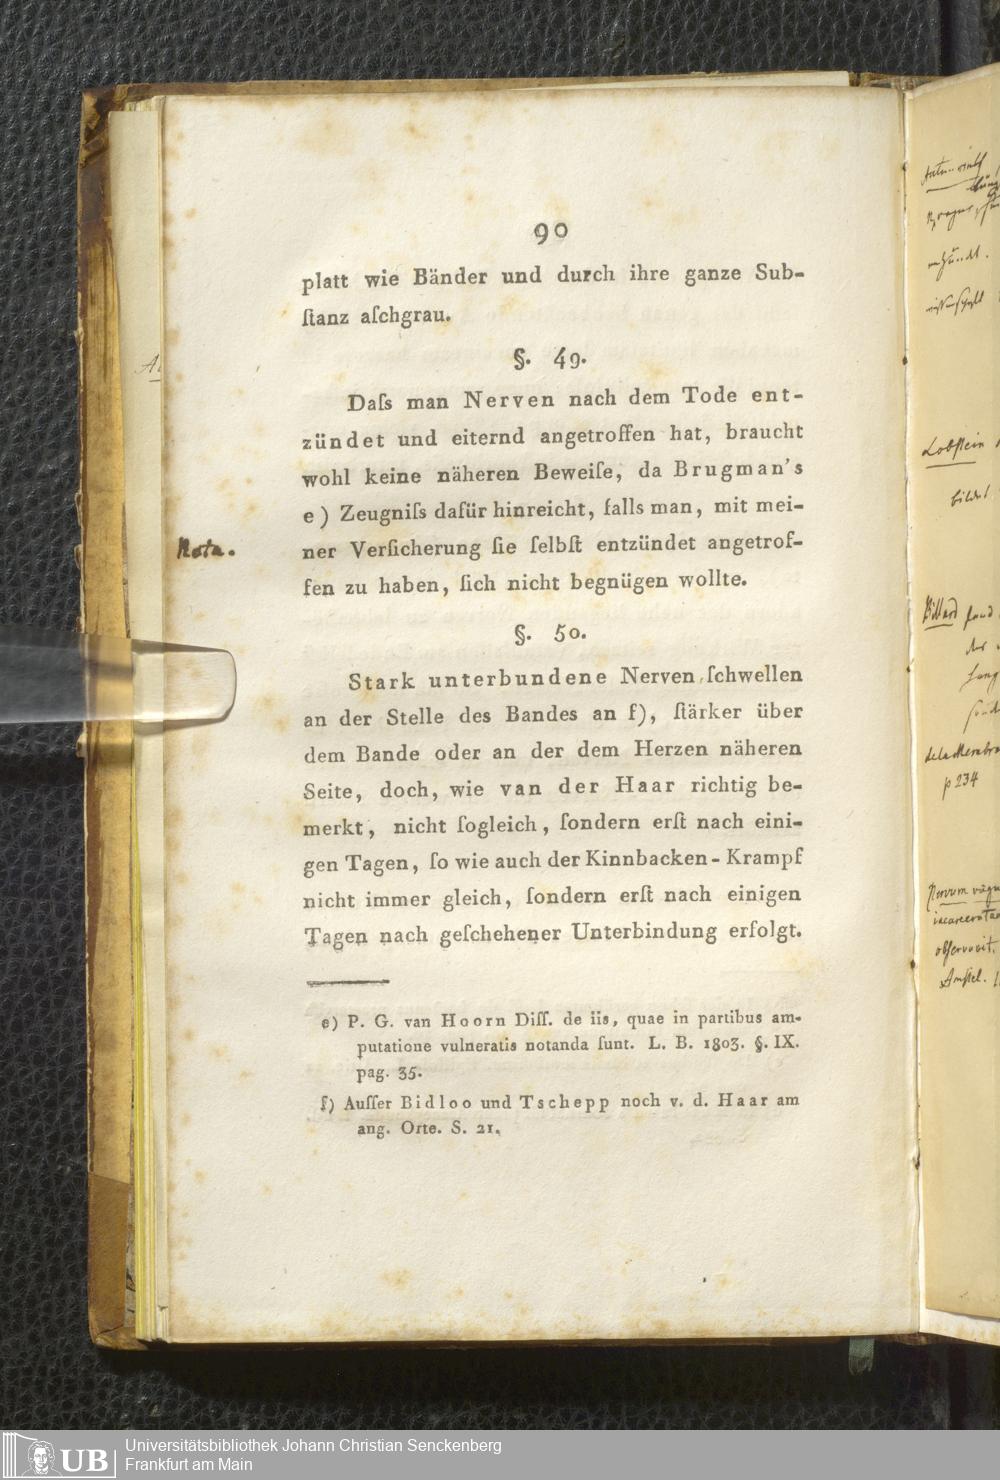 90
platt wie Bänder und durch ihre ganze Sub-
ſtanz aſchgrau.
§. 49.
Daſs man Nerven nach dem Tode ent-
zündet und eiternd angetroffen hat, braucht
wohl keine näheren Beweiſe, da Brugman's
e) Zeugniſs dafür hinreicht, falls man, mit mei-
Nota.
ner Verſicherung ſie ſelbſt entzündet angetrof-
fen zu haben, ſich nicht begnügen wollte.
§. 50.
Stark unterbundene Nerven ſchwellen
an der Stelle des Bandes an f), ſtärker über
dem Bande oder an der dem Herzen näheren
Seite, doch, wie van der Haar richtig be-
merkt, nicht ſogleich, ſondern erſt nach eini-
gen Tagen, ſo wie auch der Kinnbacken-Krampf
nicht immer gleich, ſondern erſt nach einigen
Tagen nach geſchehener Unterbindung erfolgt.
e) P. G. van Hoorn Diſſ. de iis, quae in partibus am-
putatione vulneratis notanda ſunt. L. B. 1803. §. IX.
pag. 35.
f) Auſſer Bidloo und Tschepp noch v. d. Haar am
ang. Orte. S. 21.
Lobſtein
Billard fand
p 234
Nervum
obſervavit.
Amſtel.
UB
Universitätsbibliothek Johann Christian Senckenberg
Frankfurt am Main